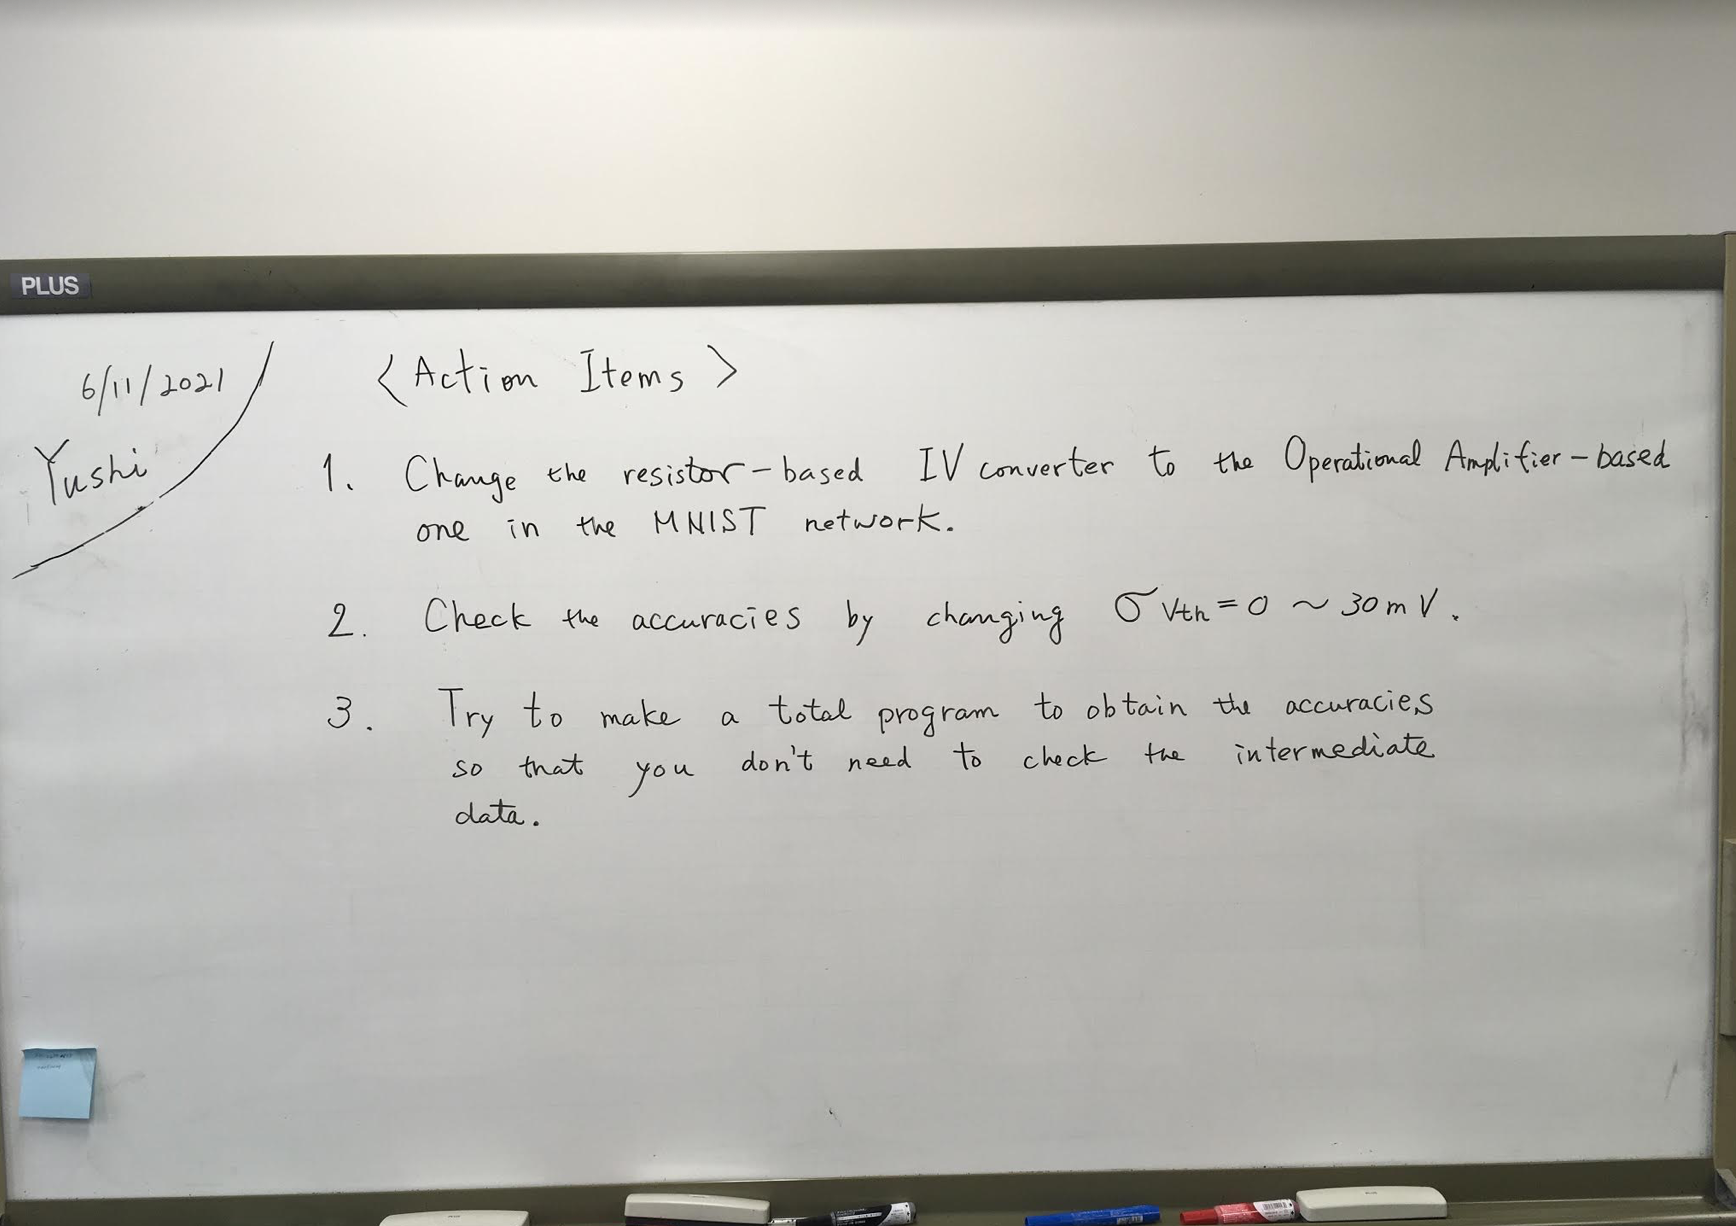 PLUS
6/11/2021
Yushi
<Action Items>
1. Change the resistor-based IV converter to the Operational Amplifier-based
one in the MNIST network.
2. Check the accuracies by changing σVth=0 ~ 30mV.
3. Try to make a total program to obtain the accuracies
so that you don't need to check the intermediate
data.